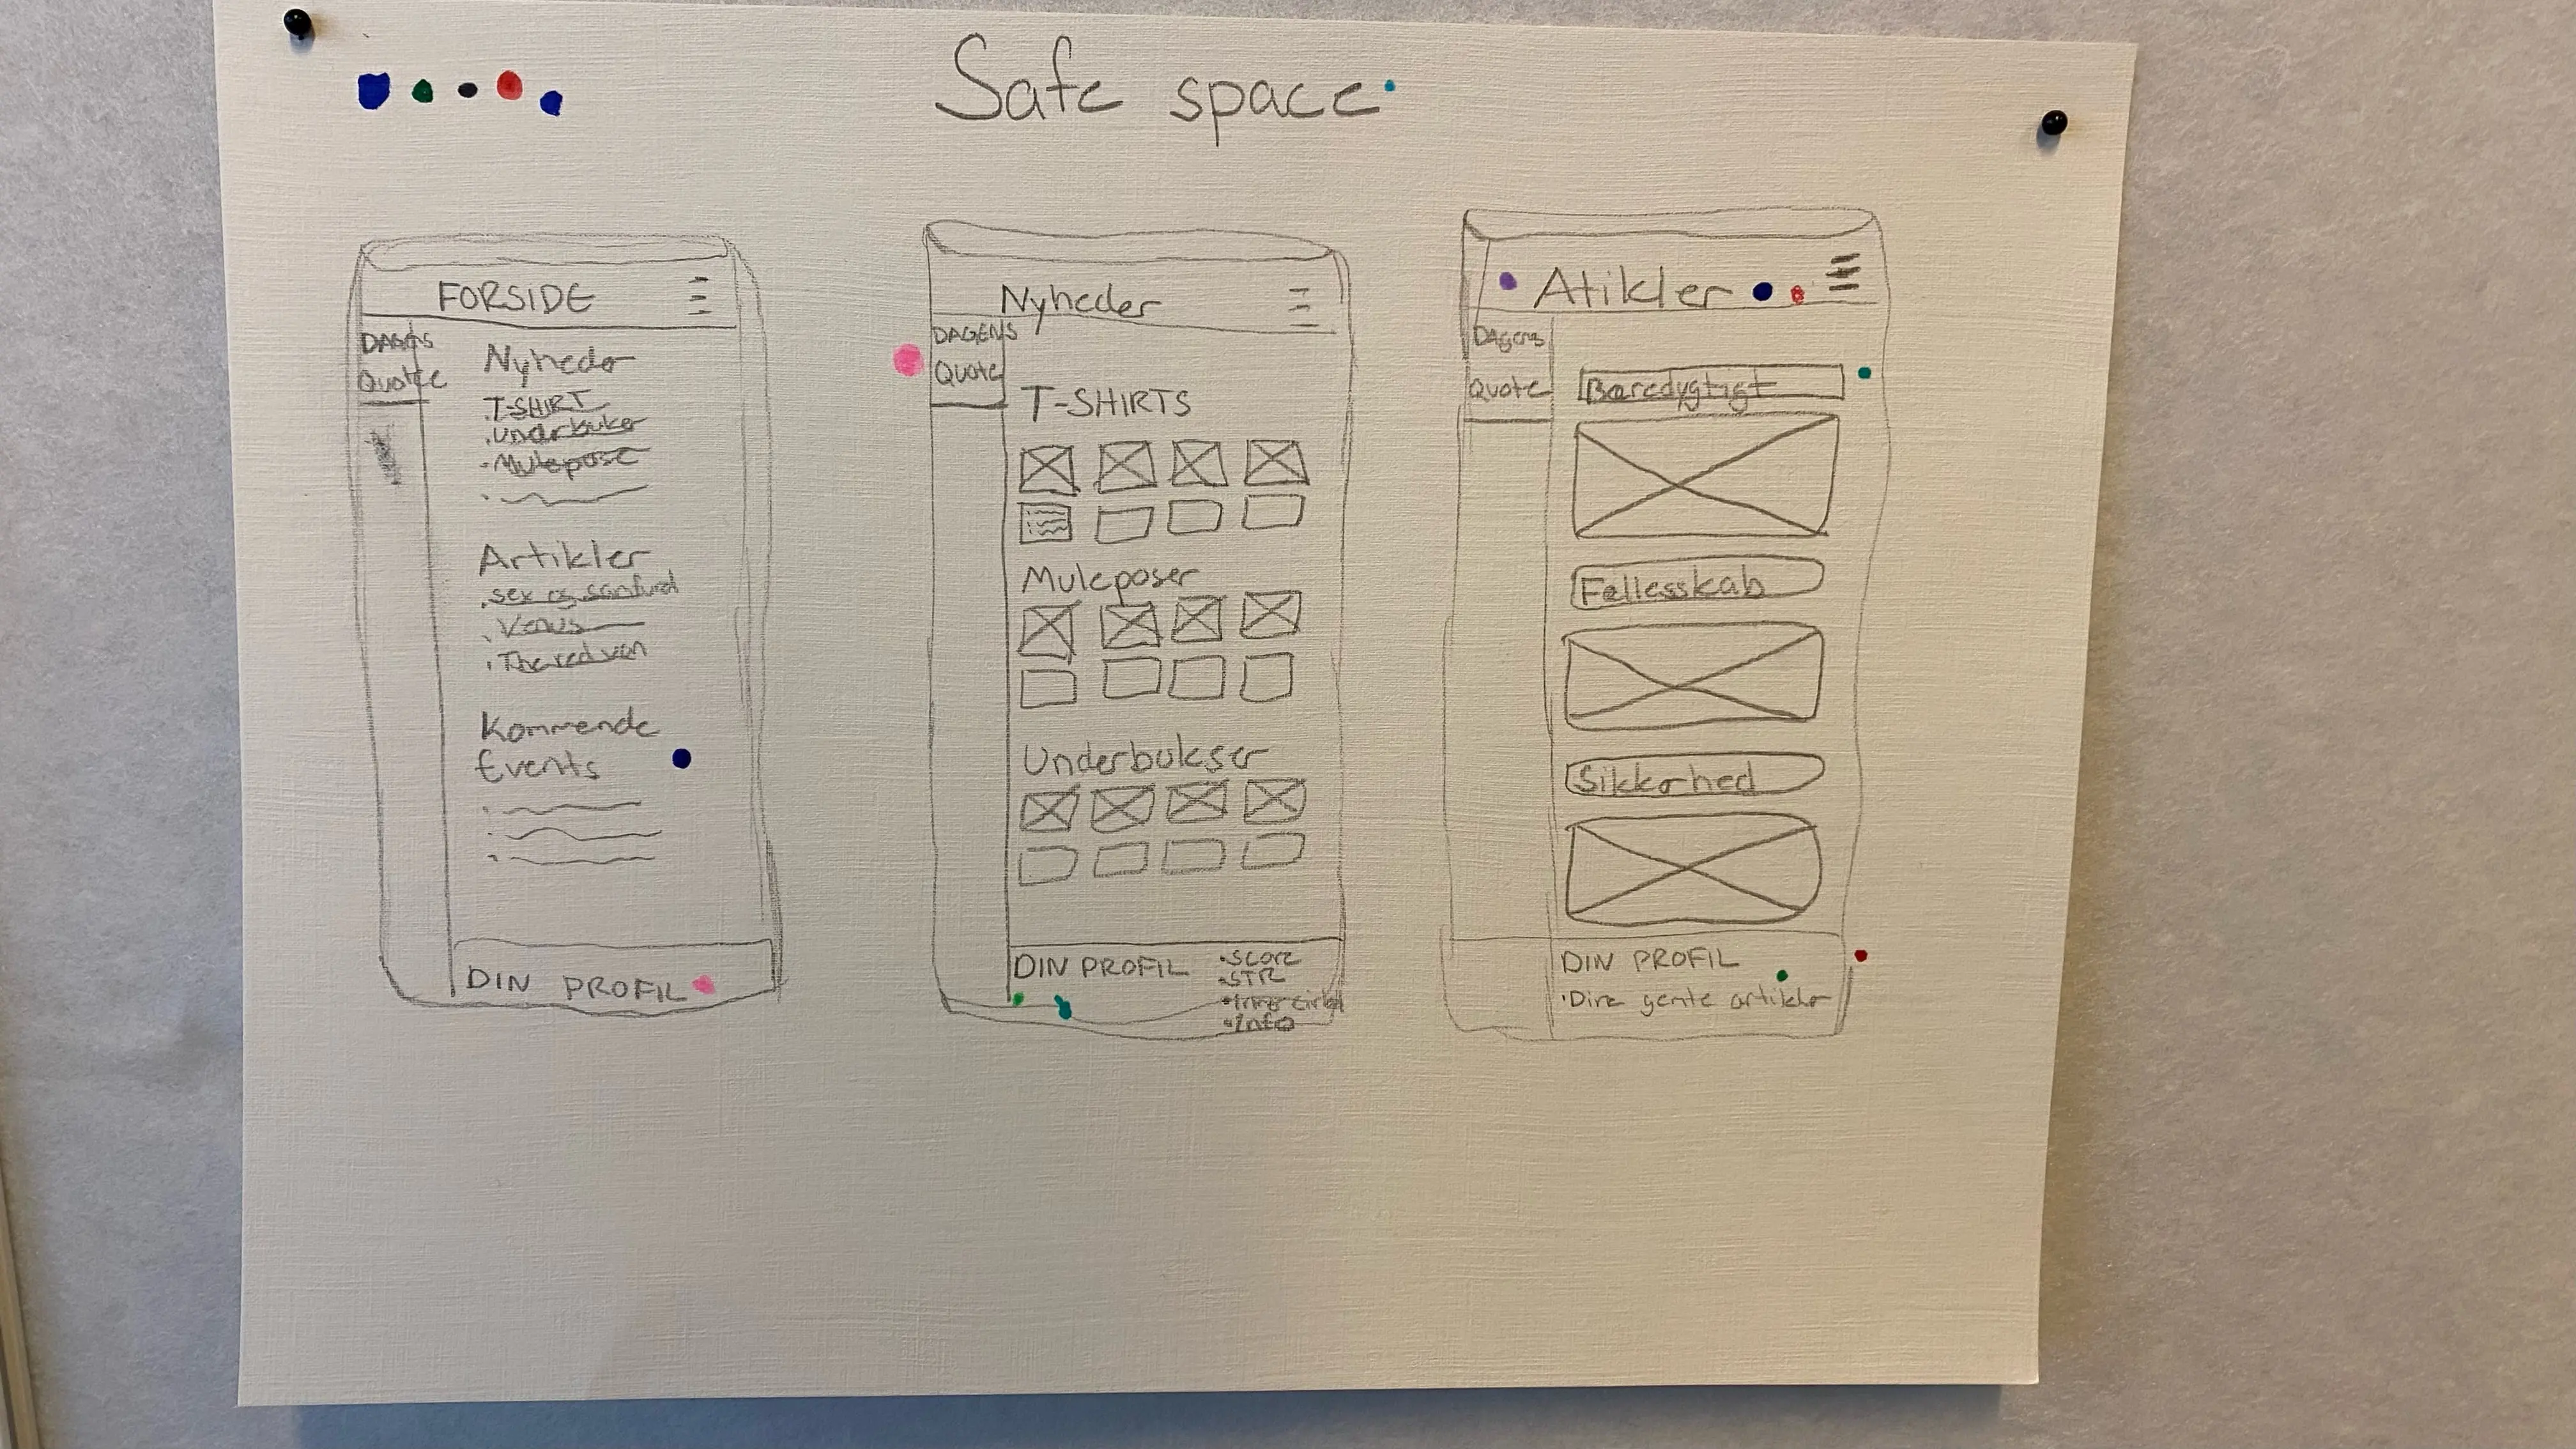 Safe space
FORSIDE
DAGENS
Quote
Nyheder
T-SHIRT
Underbukser
Mulepose
Artikler
Sex og samfund
Venus
The red van
Kommende
Events
DIN PROFIL
Nyheder
DAGENS
Quote
T-SHIRTS
Muleposer
Underbukser
DIN PROFIL
SCORE
STR
Info
Atikler
Dagens
Quote
Bæredygtigt
Fællesskab
Sikkerhed
DIN PROFIL
Dine gemte artikler